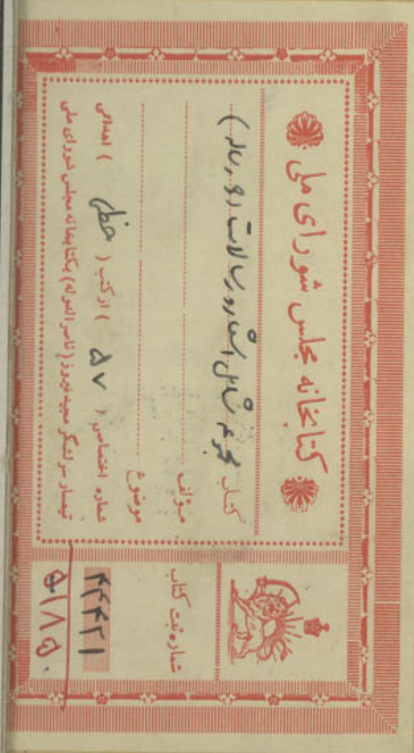 کتابخانه مجلس شورای ملی
کتاب مجموعه شامل اشعار و رسالات (۶ رساله)
مؤلف
موضوع
شماره اختصاصی ( ۵۷ ) از کتب ( خطی ) اهدائی
تیمسار سرلشگر مجید فیروز (ناصرالدوله) بکتابخانه مجلس شورای ملی
شماره ثبت کتاب
۴۲۴۲۱
۵۱۸۵۰